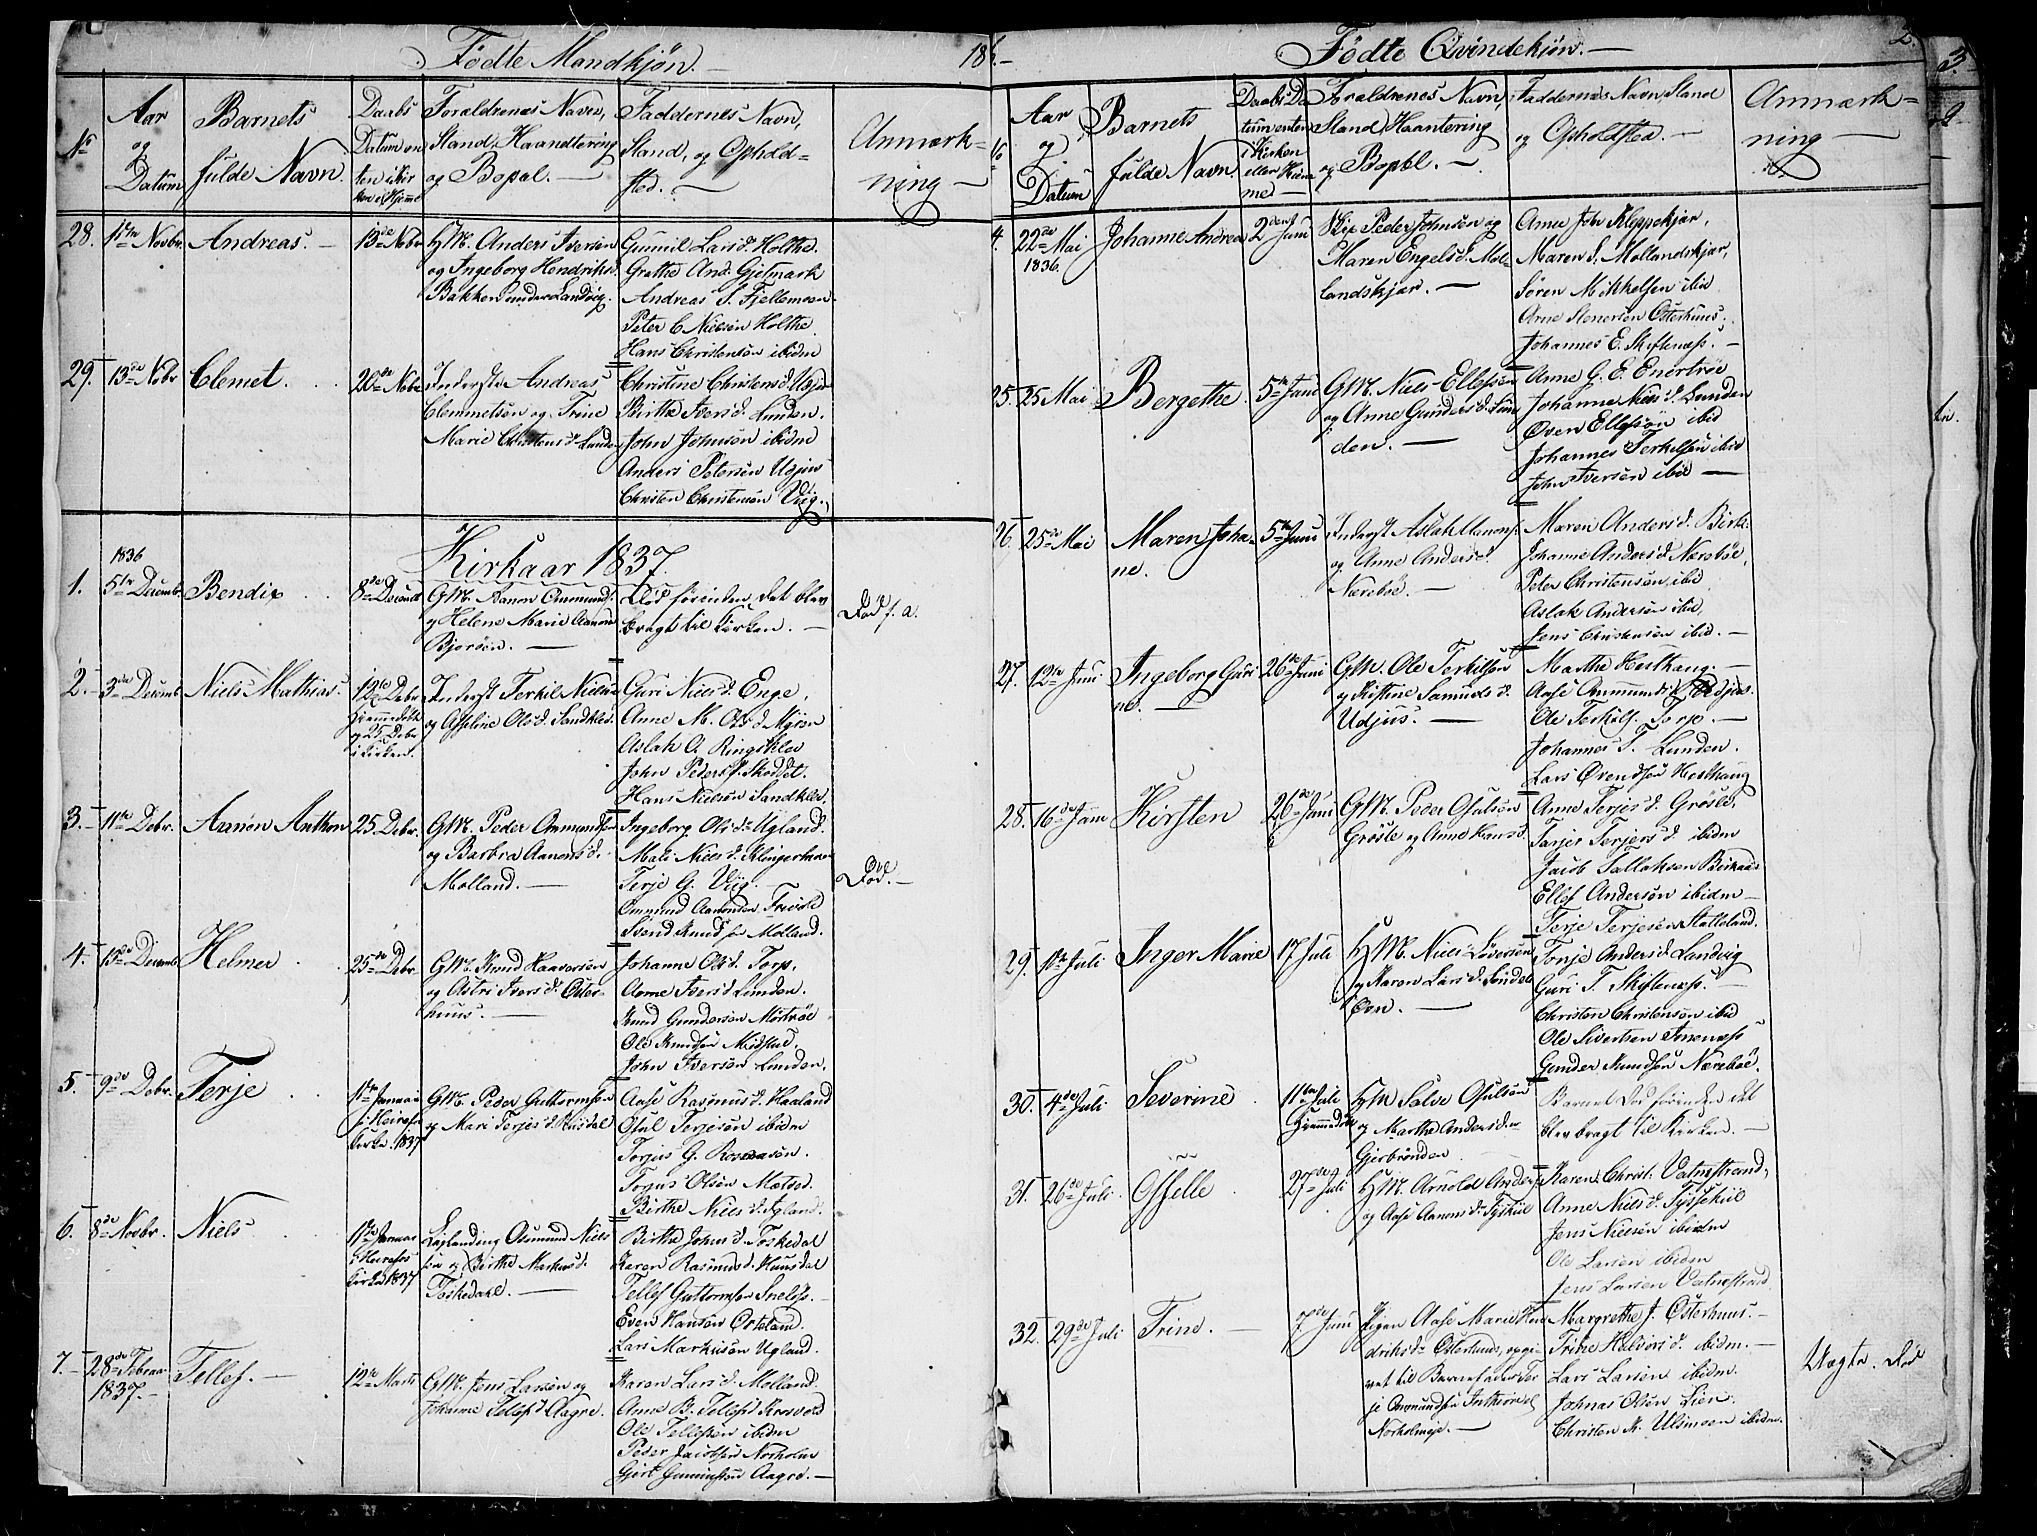 Födte Mandkjön. — 18
No
Aar og Datum
Barnets fulde Navn.
Daabs Datum enten i Kirken el. Hjemme
Forældrenes Navn, Stand, Haandtering og Bopæl. —
Faddernes Navn, Stand, og Opholdsted. —
Anmærkning —
28. 1ste Novbr. Andreas. — 13de Nobr.
HM. Anders Iversen
og Ingeborg Hendriksd.
Bakken under Landvig.
Gunnil Larsd. Holthe.
Grethe And. Gjelmark
Andreas S. Fjellemoen
Peter C Nielsen Holthe.
Hans Christensön ibidm
29. 13de Nobr Clemet. 20de Nobr.
Inderste Andreas
Clemmetsen og Trine
Marie Christensd. Lunden
Christine Christensd. Udjus
Birthe Iversd. Lunden.
John Johnsön ibidm
Anders Petersen Udjus
Christen Christensön Viig.
Kirkaar 1837
1836
1. 5te Decembr. Bendix 8de Decembr
GM. Aanon Ommunds.
og Helene Marie Aanonsd
Bjorsön. —
Död förinden det blev
bragt til Kirken. —
Död f. a.
2. 3die Decemb. Niels Mathias.
12te Debr.
Hjemmedöbt
og 25 Debr
i Kirken.
Inderst Terkil Nielsen
og Asseline Olsd. Sandklev.
Guri Nielsd. Enge.
Anne M. Olsd. Myren
Aslak O. Ringsklev
John Peders. Skoddet.
Hans Nielsön Sandklev.
3. 11te Debr. Aanon Anthon 25 Debr.
GM. Peder Ommundsen
og Barbra Aanonsd.
Molland. —
Ingeborg Olsd. Ugland.
Mali Nielsd. Klingerhoe
Terje G. Viig.
Ommund Aanonsen Frivold
Svend Knudsen Molland.
Död. —
4. 15de Decemb. Helmer 25de Debr.
GM. Knud Haaversen
og Astri Iversd. Öster-
huus. —
Johanne Olsd. Torp.
Anne Iversd Lunden.
Knud Gundersen Mörtröe
Ole Knudsen Midstue.
John Iversen Lunden.
5. 9de Debr. Terje
1ste Januar
i Heirefos
Kirke 1837
GM. Peder Guttormsen
og Mari Terjesd. Huusdal
Aase Rasmusd. Haaland
Osul Terjesön ibidm
Torjus G. Rosenaasön.
Torjus Olsön Mölsed.
Birthe Nielsd. Igland.
6. 8de Novbr. Niels
1ste Januar
i Heirefos
Kirke 1837
Leilending Osmund Niels-
sen og Birthe Markusd.
Toskedahl. —
Birthe Johnsd. Toskedal
Karen Rasmusd. Huusdal
Tellef Guttormsen Snelefs. —
Even Hansön Ostelam.
Lars Markusön Ugland.
7. 28de Febraar Tellef. — 12te Marts
1837. —
GM. Jens Larsen og
Johanne Tellefsd Aagre.
Karen Larsd. Molland.
Anne B. Tellefsd Krosvold
Ole Tellefsen ibidm
Peder Jacobsen Norholm
Gjert Gunnufsen Aagre. —
Födte Qvindekiön. —
2.
No
Aar og Datum
Barnets fulde Navn
Daabs Datum enten i Kirken eller Hiemme —
Forældrenes Navn, Stand, Haantering og Bopæl. —
Faddernes Navn, Stand og Opholdsted. —
Anmærkning —
4. 22de Mai Johanne Andrea 2den Juni
1836.
Skip. Peder Johnsen og
Maren Engelsd. Mol-
landskjær. —
Anne Joh: Kleppekjær,
Maren S. Mollandskjær,
Sören Mikkelsen ibid
Arne Stenersen Österhuus.
Johannes E. Skiftenæs. —
25. 25 Mai Bergethe. 5te Juni
GM. Niels Ellefsen
og Anne Gundersd. Lun-
den. —
Anne G. E. Enertröe
Johanne Nielsd. Lunden
Oven Ellefsön ibid
Johannes Terkelsen ibid
John Iversen ibid —
26. 25de Mai Maren Joha-
ne. 5te Juni
Inderst Aslak Aanons.
og Anne Andersd.
Næreböe. —
Maren Andersd. Birk.
Johanne Andersd. Næreböe,
Peter Christensön ibid
Aslak Andersön ibid,
Jens Christensön ibid. —
27. 12te Juni Ingeborg Guri
ne. — 26de Juni
GM. Ole Terkilsen
og Kistine Samuelsd.
Udjus. —
Marthe Hesthaug. —
Aase Ommundsd. Udjus.
Ole Terkils. Torp. —
Johannes T. Lunden.
Lars Övensen Hesthaug
28. 16de Juni Kirsten 26de Juni
GM. Peder Osulsön
Grösle og Anne Hansd.
Anne Terjesd. Grösle.
Tarjer Terjersd. ibidm
Jacob Tallaksen Birkaas
Ellef Andersön ibidm —
Terje Terjesen Stalleland.
29. 1ste Juli Inger Marie 17 Juli
HM. Niels Söversen
og Karen Larsd. Söndel-
öen. —
Tonje Andersd. Landvig
Guri T. Skiftenæs.
Christen Christensön ibid
Ole Sivertsen Inenæs
Gunder Knudsen Næreböe.
30. 4de Juli Severine
11te Juli
Hjemmedöbt
HM Salve Osulsön
og Marthe Andersd.
Gjerbrönden
Barnet död förinden det
blev bragt til Kirken. —
31. 26de Juli Offelle 27de Juli
HM. Arnold Anders.
og Aase Aanonsd. Tyskiil
Karen Christ. Vatnestrand,
Anne Nielsd. Tyssekiil
Jens Nielsen ibidm
Ole Larsen ibidm
Jens Larsen Vatnestrand
32. 29de Juli Trine. — 7de Juni
Pigen Aase Marie Hen-
driksd. Österhuus, opgi-
vet til Barnefader Ter-
je Ommundsen
Norholmeje. —
Margrethe J. Österhuus —
Trine Halvorsd. ibidm. —
Lars Larsen ibidm.
Johnas Olsön Lien.
Christen K. Ulsmoen ibidm.
Uægte. Död
3